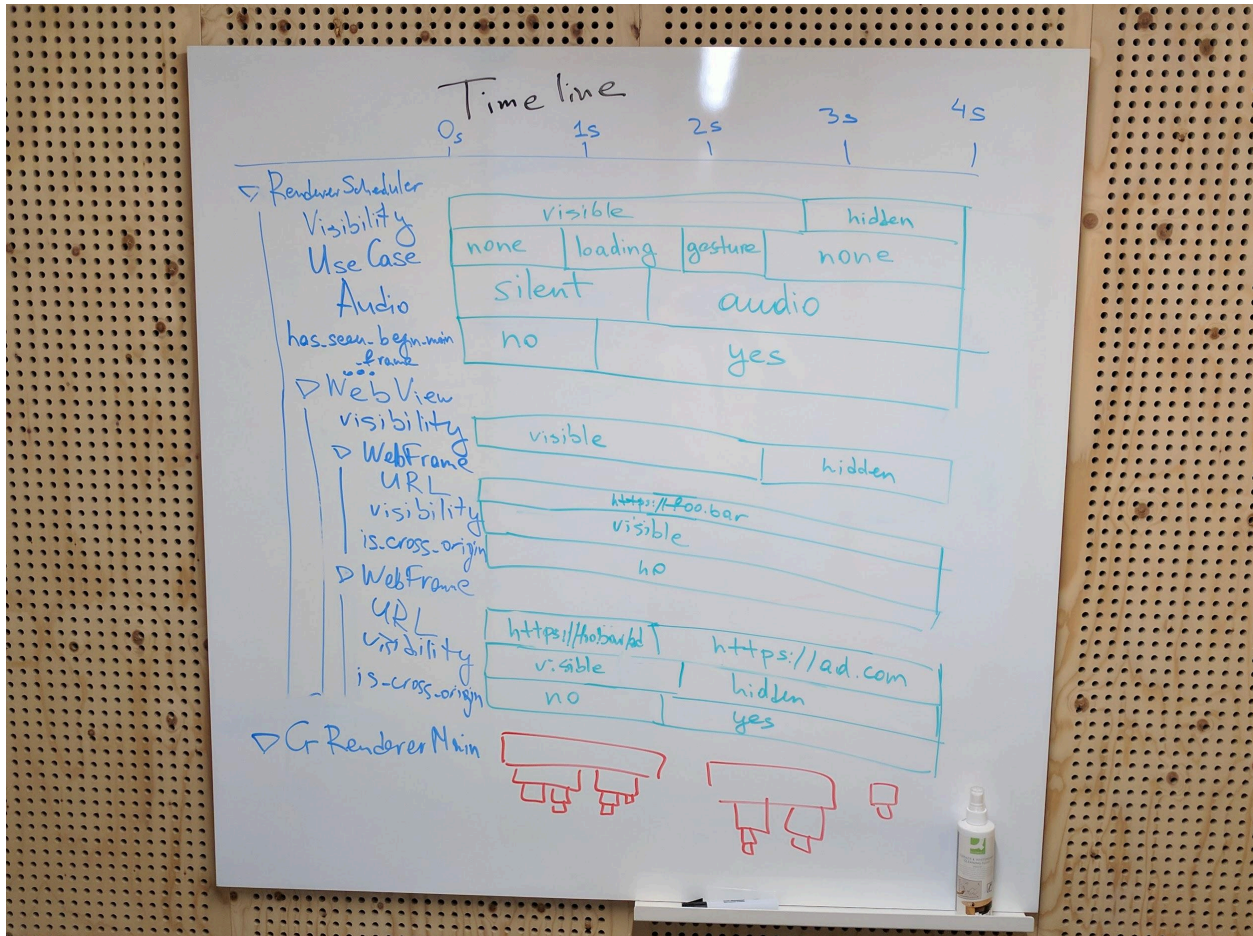 Timeline
0s 1s 2s 3s 4s
▽ RendererScheduler
Visibility visible hidden
Use Case none loading gesture none
Audio silent audio
has_seen_begin_main no yes
_frame
...
▷ WebView
visibility visible hidden
▷ WebFrame
URL https://foo.bar
visibility visible
is_cross_origin no
▷ WebFrame
URL https://foo.bar/ad https://ad.com
visibility visible hidden
is_cross_origin no yes
▽ CrRendererMain